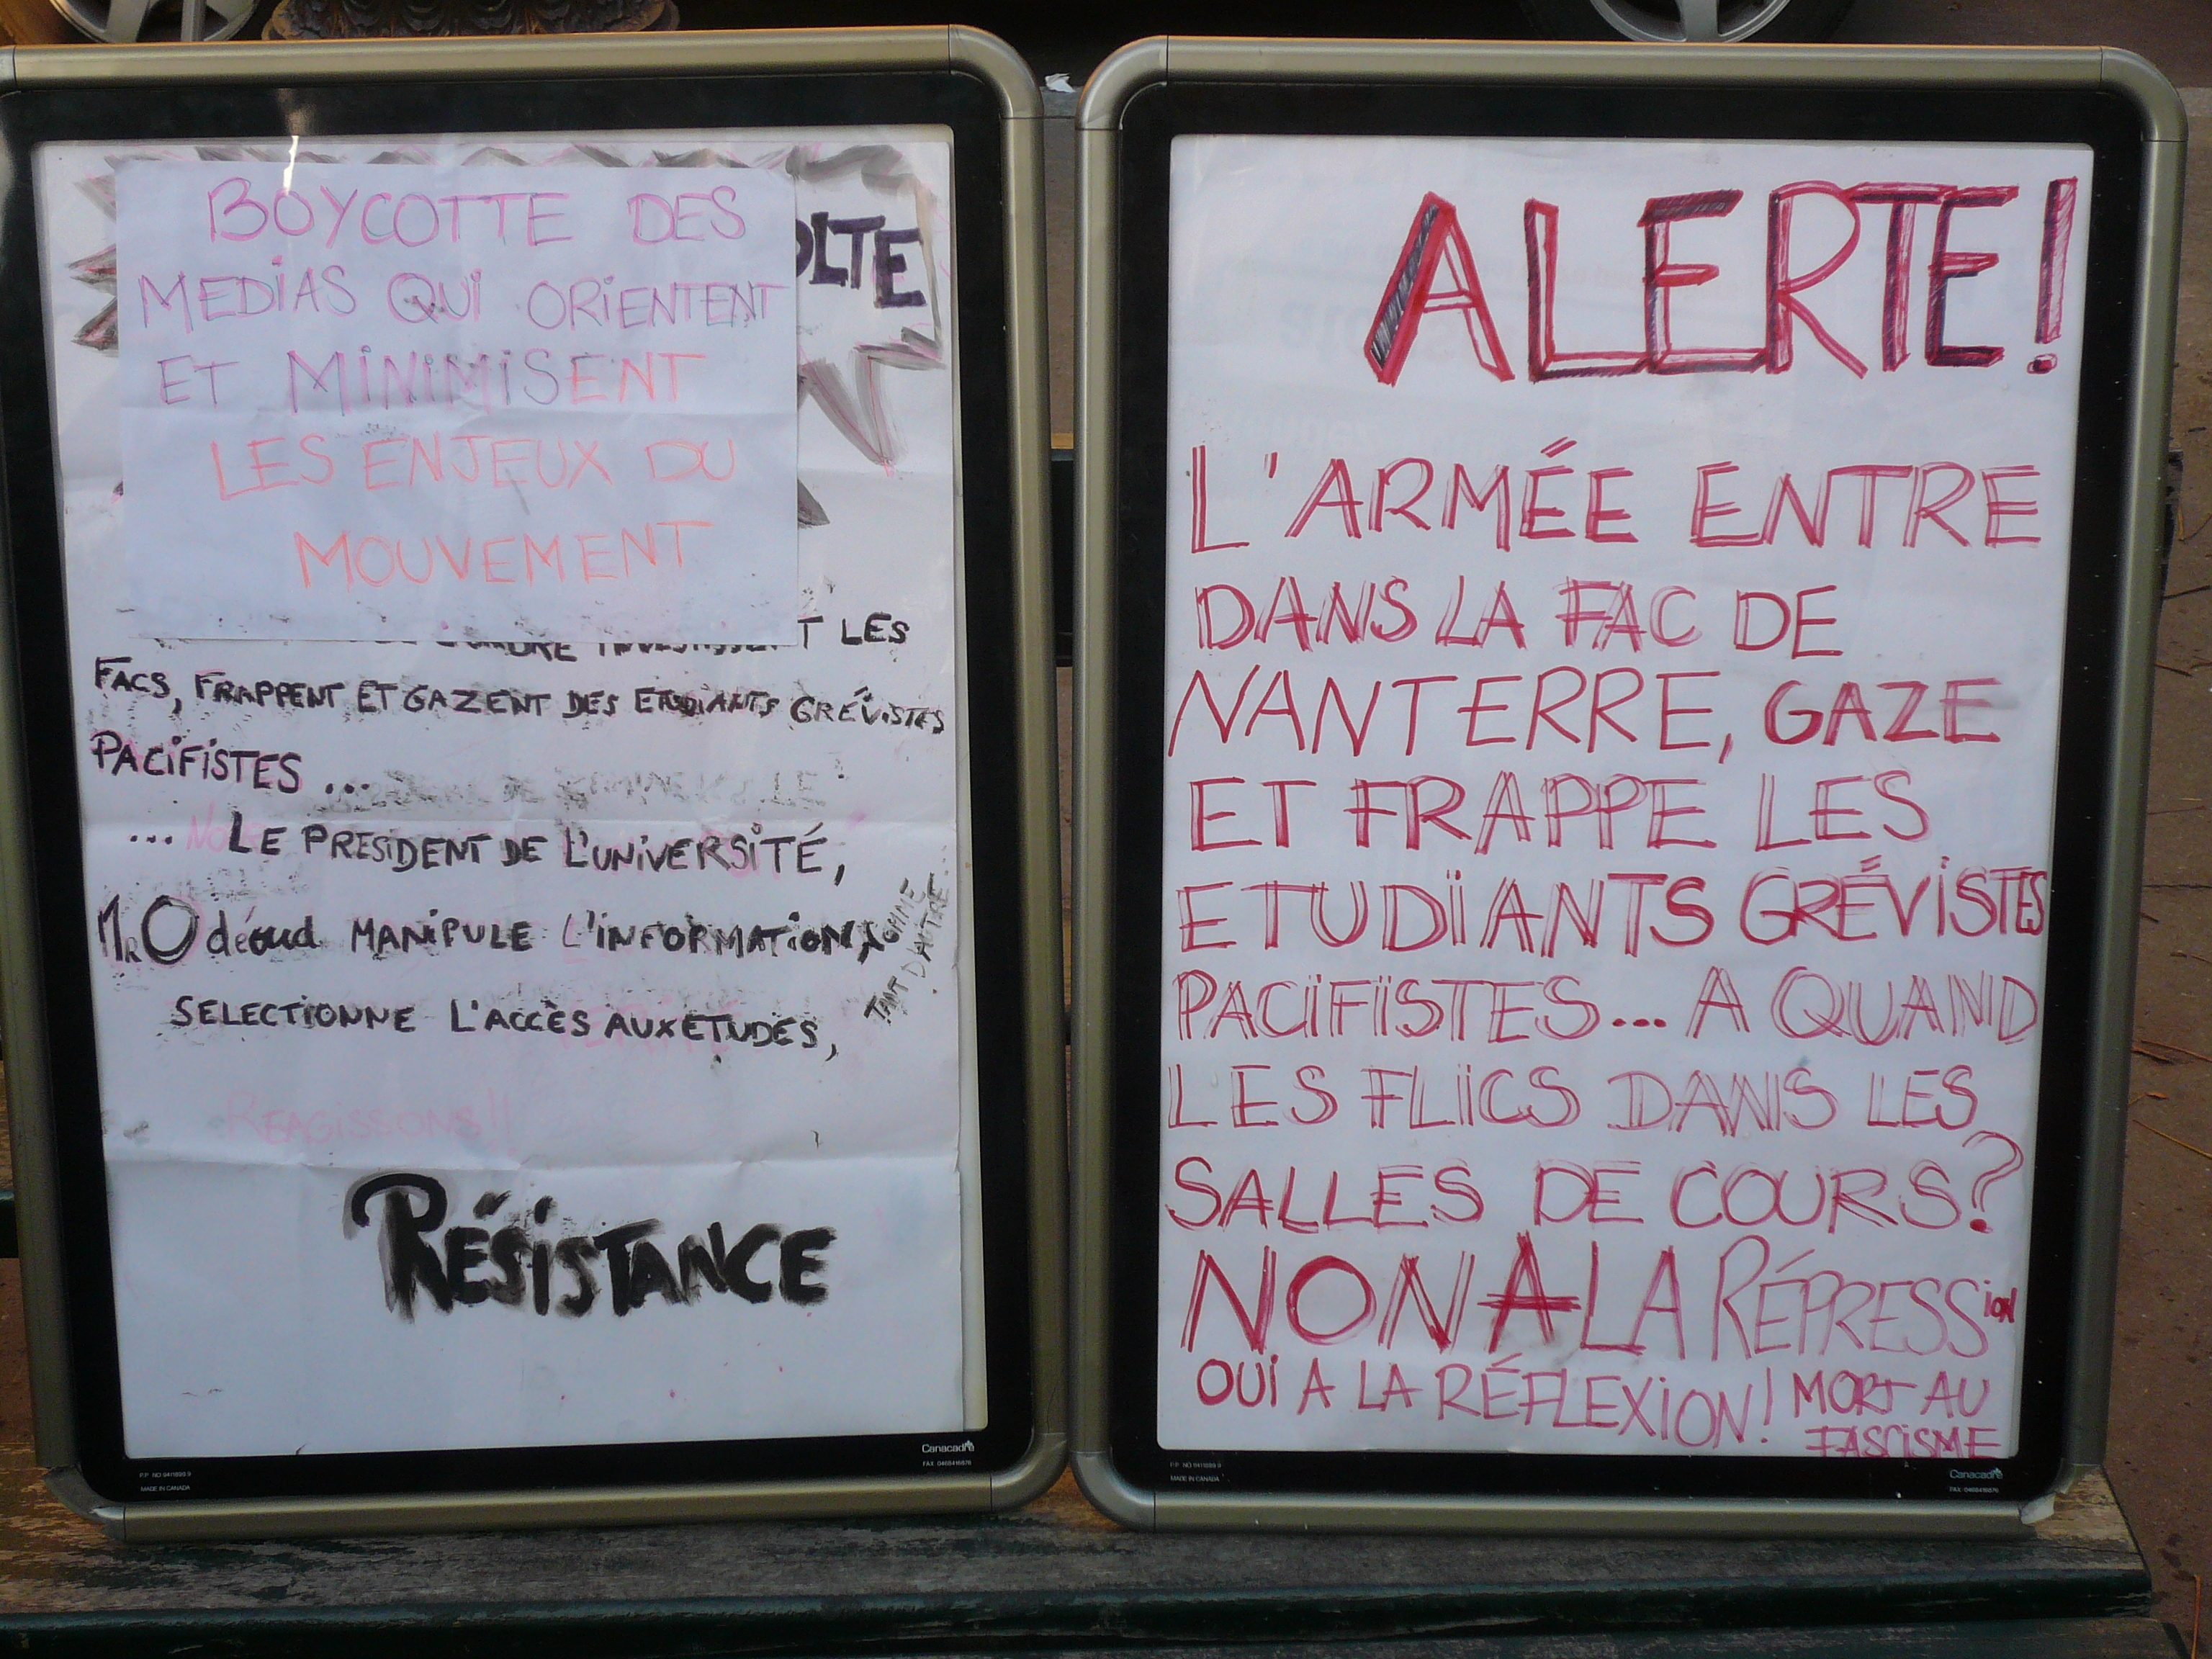 BOYCOTTE DES
MEDIAS QUI ORIENTENT
ET MINIMISENT
LES ENJEUX DU
MOUVEMENT
OLTE
T LES
FACS, FRAPPENT ET GAZENT DES ETUDIANTS GRÉVISTES
PACIFISTES ...
... LE PRESIDENT DE L'UNIVERSITÉ,
MR Odéoud MANIPULE L'INFORMATION,
COMME
TANT D'AUTRE...
SELECTIONNE L'ACCÈS AUX ETUDES,
REAGISSONS!!
RÉSISTANCE
Canacadre
FAX 0468416876
P.P NO 9411899.9
MADE IN CANADA
ALERTE!
L'ARMÉE ENTRE
DANS LA FAC DE
NANTERRE, GAZE
ET FRAPPE LES
ETUDIANTS GRÉVISTES
PACIFISTES... A QUAND
LES FLICS DANS LES
SALLES DE COURS?
NON A LA RÉPRESSION
OUI A LA RÉFLEXION! MORT AU
FASCISME
MADE IN CANADA
Canacadre
FAX 0468416876